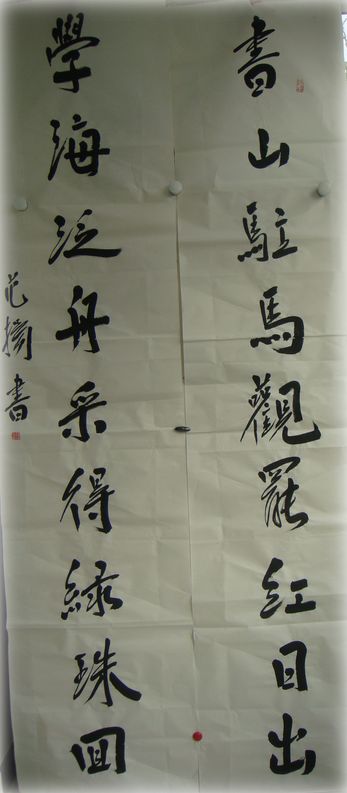 書山駐馬觀罷红日出
學海泛舟采得緑珠回
書